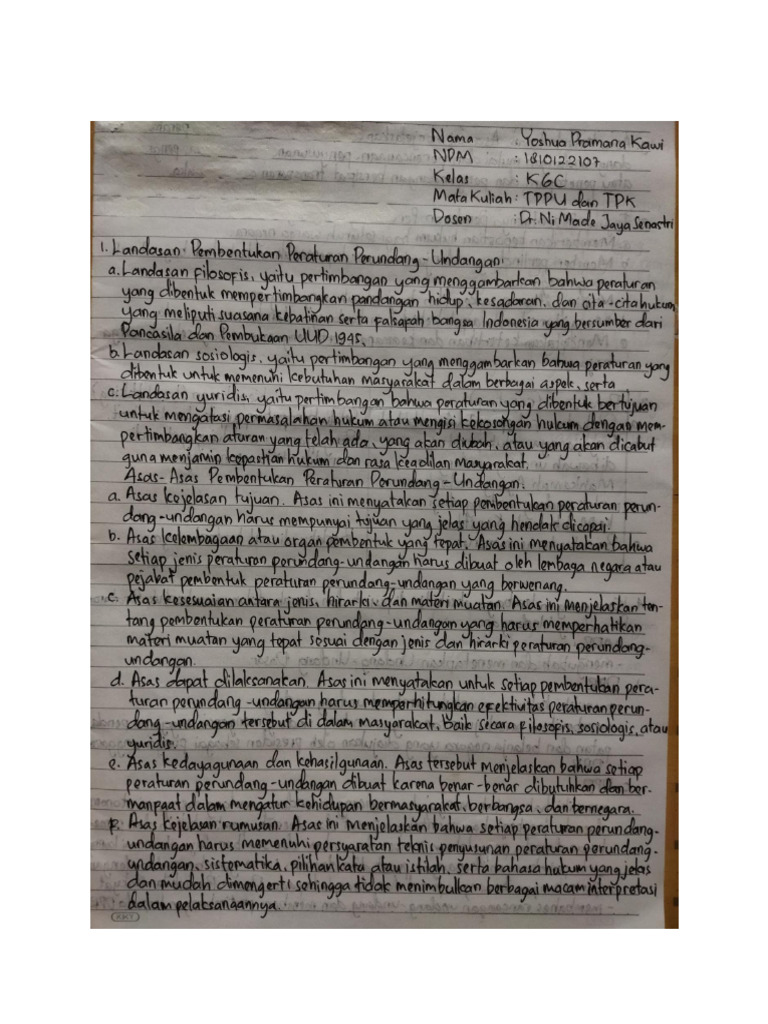 Nama : Yoshua Pramana Kawi
NPM : 1810122107
Kelas : K6C
Mata Kuliah : TPPU dan TPK
Dosen : Dr. Ni Made Jaya Senastri
1. Landasan Pembentukan Peraturan Perundang-Undangan
a. Landasan filosofis, yaitu pertimbangan yang menggambarkan bahwa peraturan
yang dibentuk mempertimbangkan pandangan hidup, kesadaran, dan cita-cita hukum
yang meliputi suasana kebatinan serta falsafah bangsa Indonesia yang bersumber dari
Pancasila dan Pembukaan UUD 1945.
b. Landasan sosiologis, yaitu pertimbangan yang menggambarkan bahwa peraturan yang
dibentuk untuk memenuhi kebutuhan masyarakat dalam berbagai aspek, serta
c. Landasan yuridis, yaitu pertimbangan bahwa peraturan yang dibentuk bertujuan
untuk mengatasi permasalahan hukum atau mengisi kekosongan hukum dengan mem-
pertimbangkan aturan yang telah ada, yang akan diubah, atau yang akan dicabut
guna menjamin kepastian hukum dan rasa keadilan masyarakat.
Asas-Asas Pembentukan Peraturan Perundang-Undangan:
a. Asas kejelasan tujuan. Asas ini menyatakan setiap pembentukan peraturan perun-
dang-undangan harus mempunyai tujuan yang jelas yang hendak dicapai.
b. Asas kelembagaan atau organ pembentuk yang tepat. Asas ini menyatakan bahwa
setiap jenis peraturan perundang-undangan harus dibuat oleh lembaga negara atau
pejabat pembentuk peraturan perundang-undangan yang berwenang.
c. Asas kesesuaian antara jenis, hirarki, dan materi muatan. Asas ini menjelaskan ten-
tang pembentukan peraturan perundang-undangan yang harus memperhatikan
materi muatan yang tepat sesuai dengan jenis dan hirarki peraturan perundang-
undangan.
d. Asas dapat dilaksanakan. Asas ini menyatakan untuk setiap pembentukan pera-
turan perundang-undangan harus memperhitungkan efektivitas peraturan perun-
dang-undangan tersebut di dalam masyarakat, baik secara filosofis, sosiologis, atau
yuridis.
e. Asas kedayagunaan dan kehasilgunaan. Asas tersebut menjelaskan bahwa setiap
peraturan perundang-undangan dibuat karena benar-benar dibutuhkan dan ber-
manfaat dalam mengatur kehidupan bermasyarakat, berbangsa, dan bernegara.
f. Asas kejelasan rumusan. Asas ini menjelaskan bahwa setiap peraturan perundang-
undangan harus memenuhi persyaratan teknis penyusunan peraturan perundang-
undangan, sistematika, pilihan kata atau istilah, serta bahasa hukum yang jelas
dan mudah dimengerti sehingga tidak menimbulkan berbagai macam interpretasi
dalam pelaksanaannya.